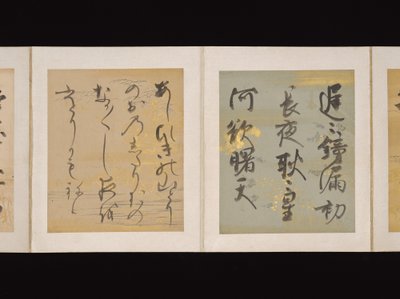 遅々鐘漏初
長夜耿々星
河欲曙天
あしひきの山どり
のおのしたりおの
なか〱し夜を
ひとりかもねむ